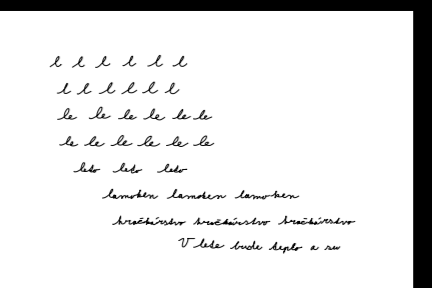 l l l l l l
l l l l l l
le le le le le le
le le le le le le
leto leto leto
lamohen lamohen lamohen
hračkárstvo hračkárstvo hračkárstvo
V lete bude teplo a